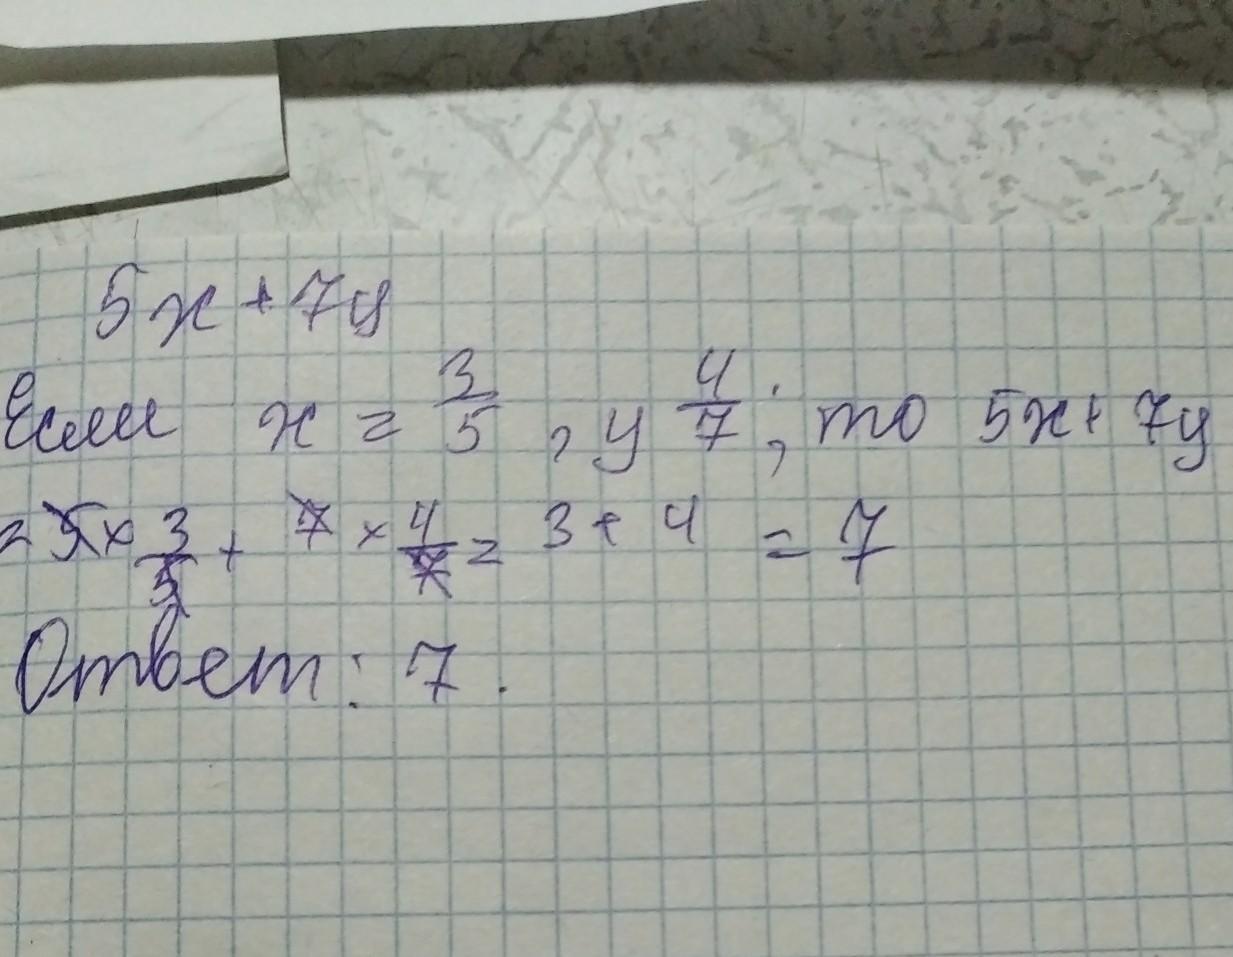 5x + 7y
Если x = 3/5, y 4/7; то 5x + 7y
= 5 × 3/5 + 7 × 4/7 = 3 + 4 = 7
Ответ: 7.